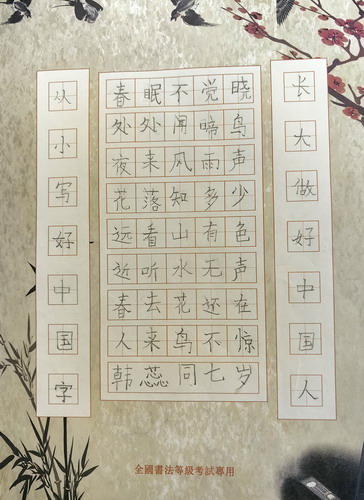 从小写好中国字
春眠不觉晓
处处闻啼鸟
夜来风雨声
花落知多少
远看山有色
近听水无声
春去花还在
人来鸟不惊
韩蕊同七岁
长大做好中国人
全國書法等級考試專用